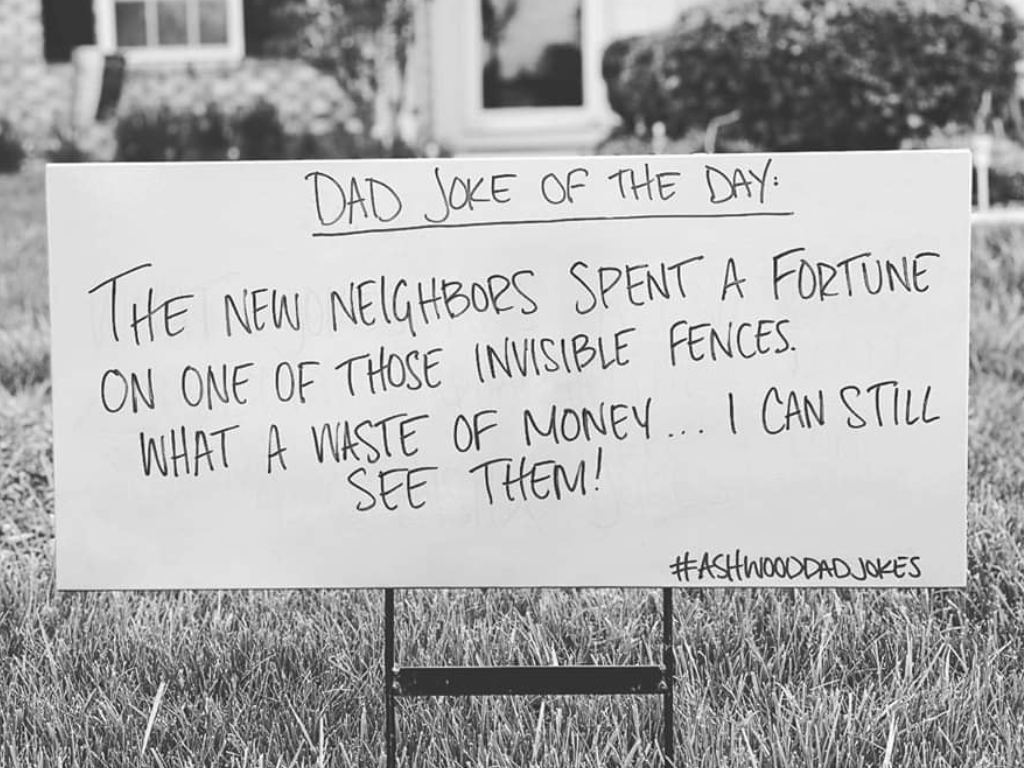 DAD JOKE OF THE DAY:
THE NEW NEIGHBORS SPENT A FORTUNE
ON ONE OF THOSE INVISIBLE FENCES.
WHAT A WASTE OF MONEY... I CAN STILL
SEE THEM!
#ASHWOODDADJOKES